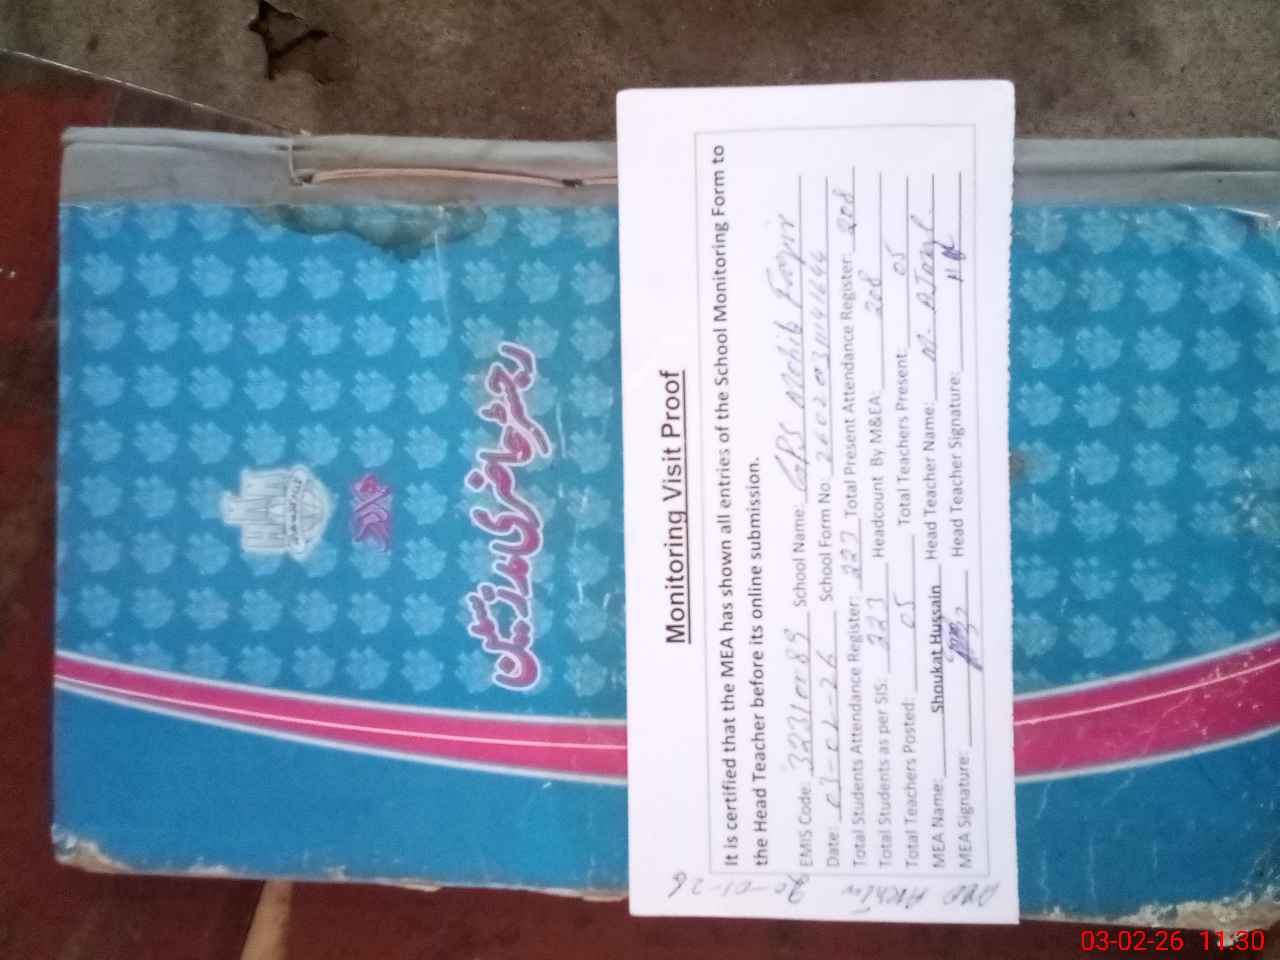 Monitoring Visit Proof
It is certified that the MEA has shown all entries of the School Monitoring Form to
the Head Teacher before its online submission.
EMIS Code: School Name: GPS Mohib Faqir
Date: 03-02-26 School Form No
Total Students Attendance Register: 223 Total Present Attendance Register: 208
Total Students as per SIS: 223 Headcount By M&EA: 208
Total Teachers Posted: 05 Total Teachers Present: 05
MEA Name: Shoukat Hussain Head Teacher Name: M. Ajmal
MEA Signature: Head Teacher Signature:
رجسٹر حاضری مدرسین
03-02-26 11:30